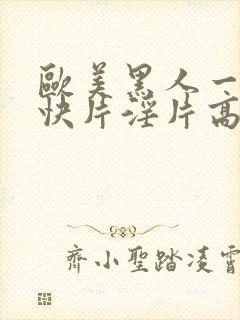 歐美黑人一
快片淫片高
齊小聖踏凌霄